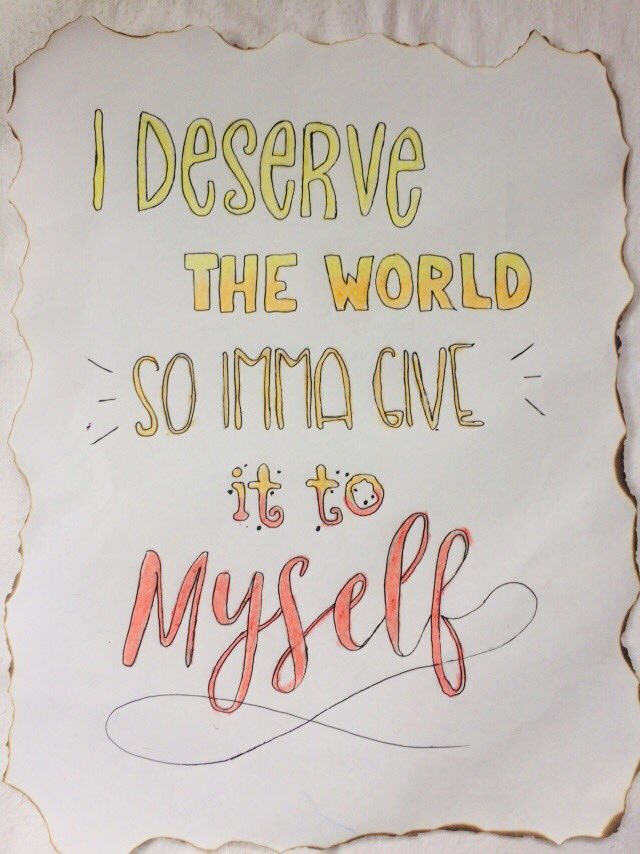 I DeSeRVe
THE WORLD
SO IMMA GIVE
it to
Myself